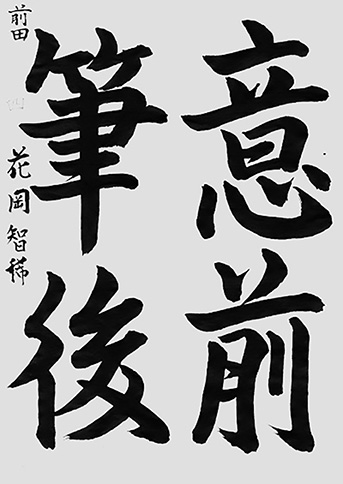 意前
筆後
前田
花岡智稀